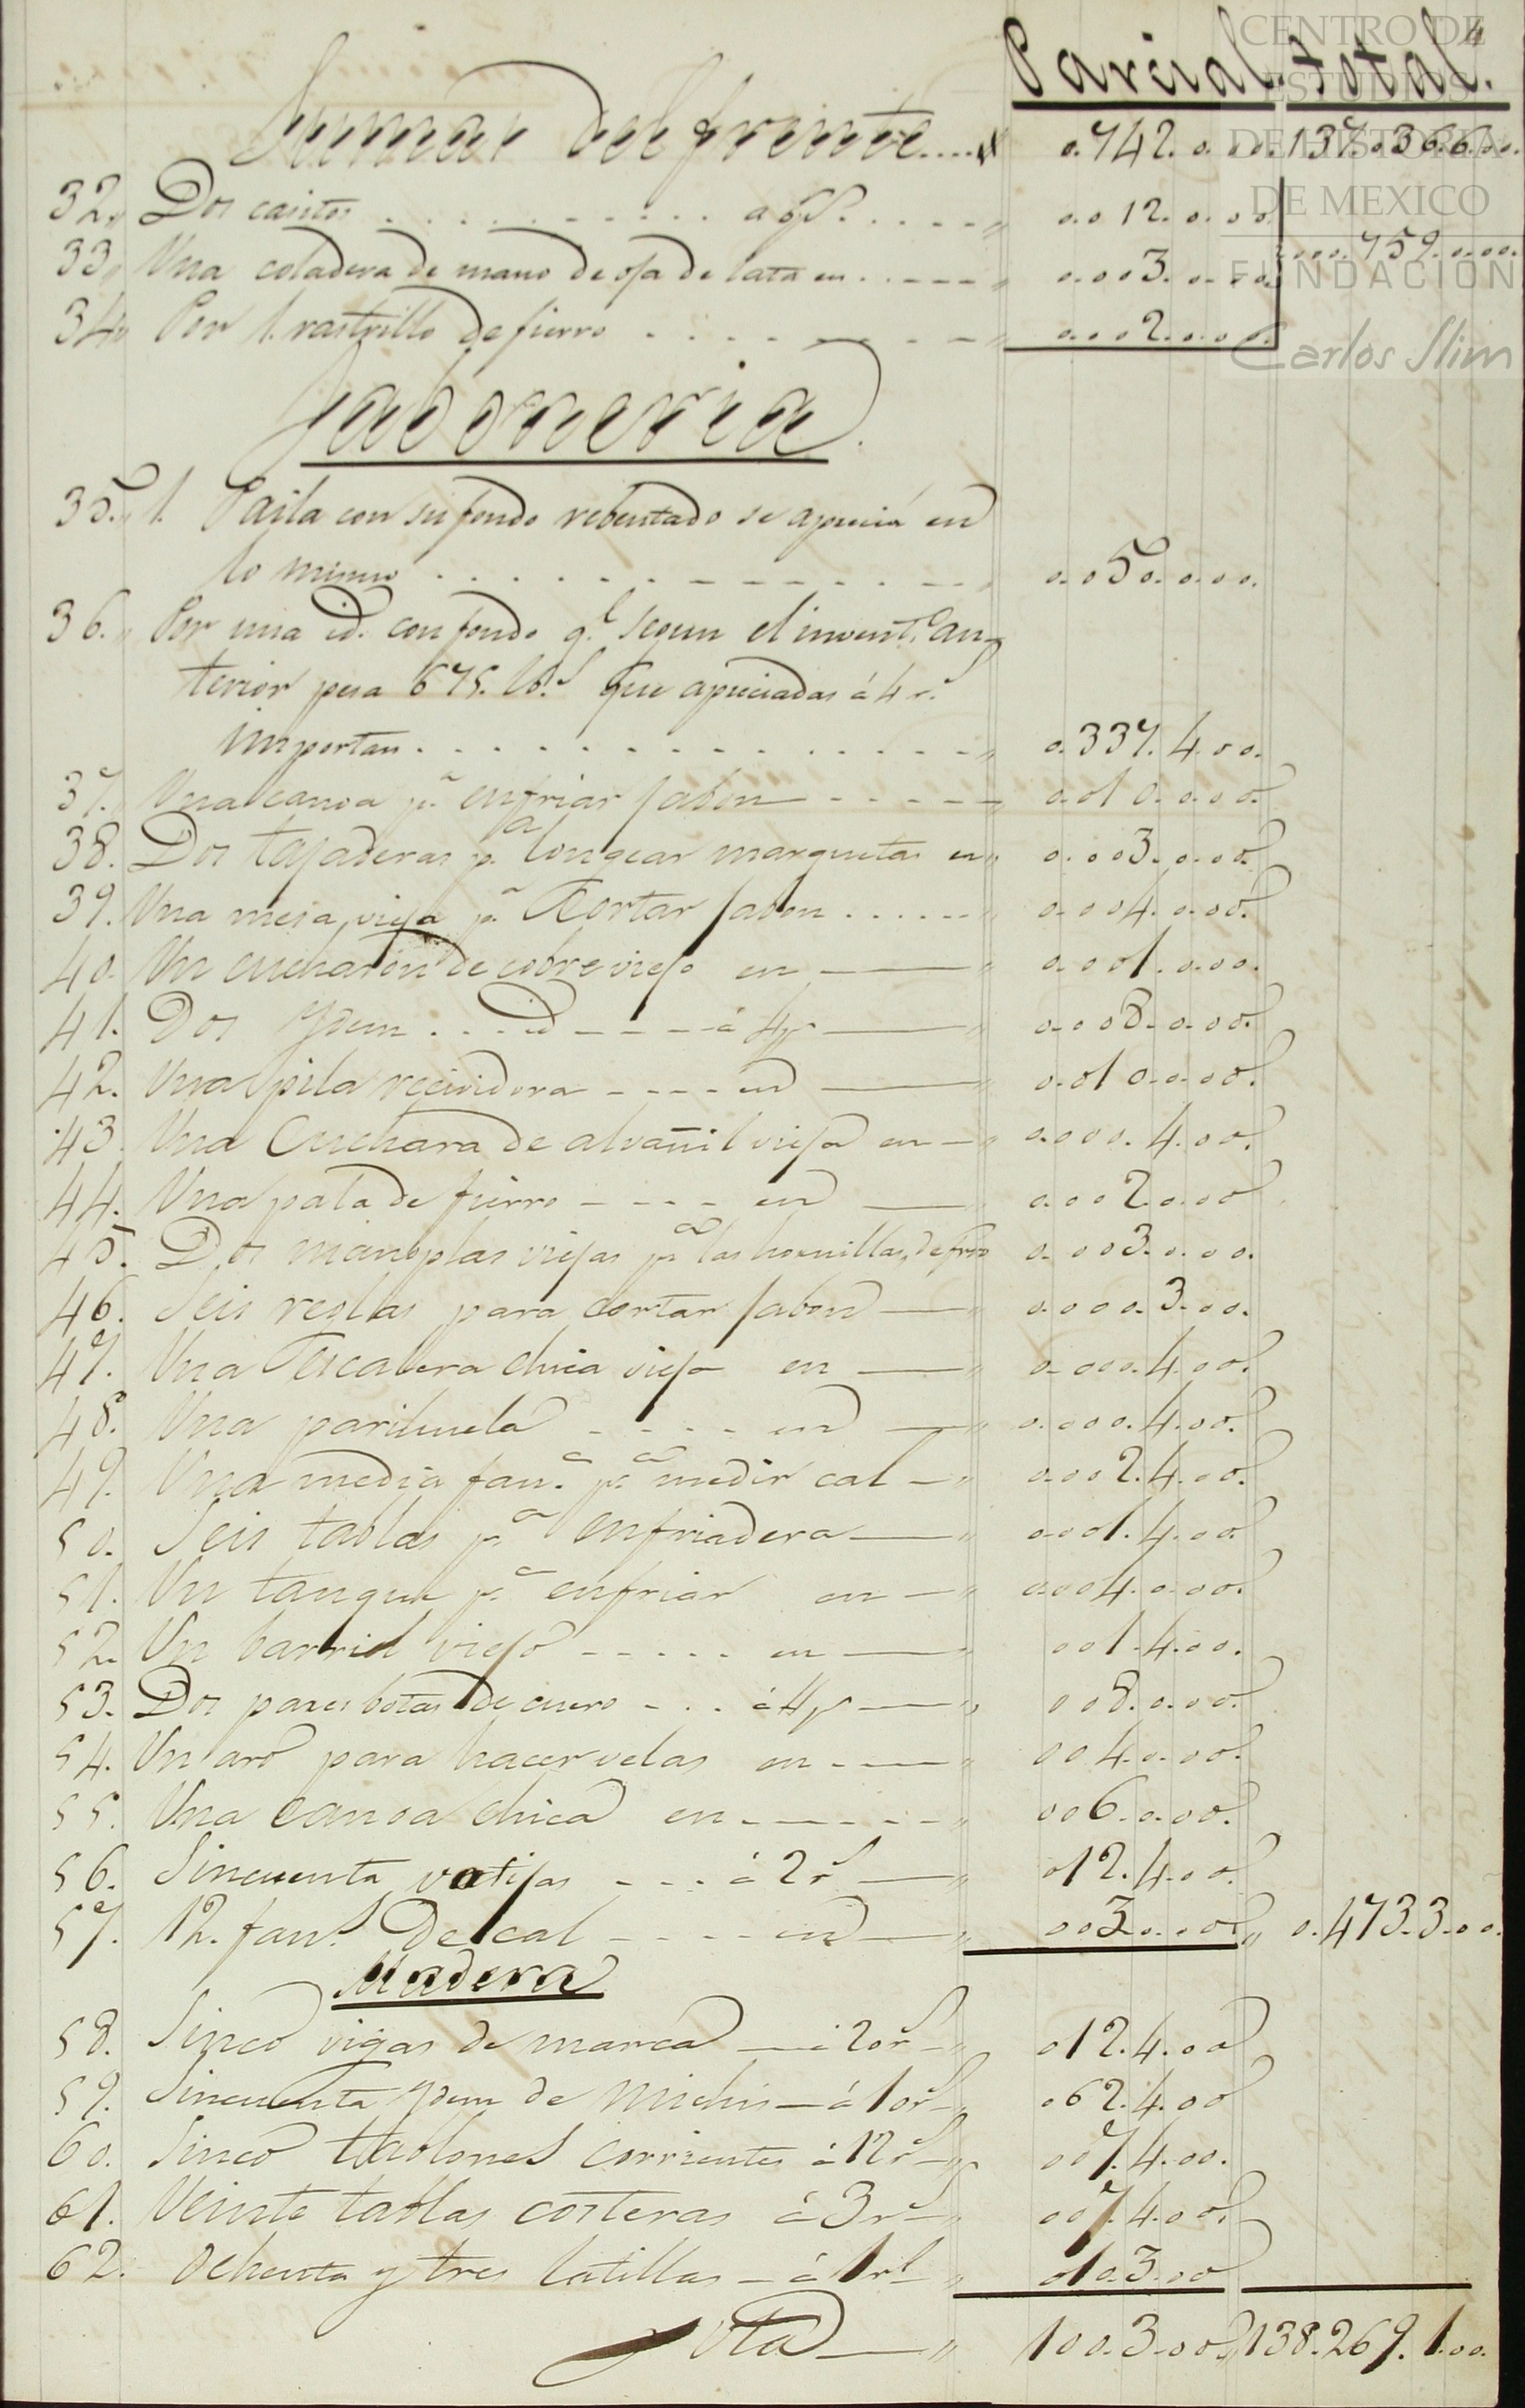 Parcial. total.
Sumas del frente.... 0.742.0.00. 137.0366.00.
32. Dos casitos . . . . . . . . . . a 6 ps. . . . . - - 0.012.0.00.
33. Una coladera de mano de oja de lata en . . - - - - 0.003.0.00. 000.759.0.00.
34. Por 1. rastrillo de fierro . . . - - - - - - 0.002.0.00.
Jaboneria
35. 1. Paila con su fondo rebentado se aprecia en
lo mismo . . . . . . . - - - - - - 0.050.0.00.
36. Por una id. con fondo q.e segun el invent.o an-
terior pesa 675. lb.s que apreciadas á 4 r.s
importan . . . . . . . . . . . . . . 0.337.4.00.
37. Una canoa p.a enfriar jabon - - - - - 0.010.0.00.
38. Dos tajaderas p.a longear marquetas en 0.003.0.00.
39. Una mesa vieja p.a Cortar jabon . . . . . . 0.004.0.00.
40. Un cucharon de cobre viejo en — 0.001.0.00.
41. Dos Ydem . . . id - - - - á 4 p — 0.008.0.00.
42. Una pila recividora - - - - en — 0.010.0.00.
43. Una Cuchara de alvañil vieja en — 0.000.4.00.
44. Una pala de fierro - - - - en — 0.002.0.00
45. Dos manoplas viejas p.a las hornillas, de frro 0.003.0.00.
46. Seis reglas para cortar jabon — 0.000.3.00.
47. Una Escalera chica vieja en — 0.000.4.00.
48. Una parihuela - - - - en — 0.000.4.00.
49. Una media fan.a p.a medir cal — 0.002.4.00.
50. Seis tablas p.a enfriadera — 0.001.4.00.
51. Un tanque p.a enfriar en — 0.004.0.00.
52. Un barril viejo - - - - - en — 001.4.00.
53. Dos pares botas de cuero - . . á 4 p — 008.0.00.
54. Un aro para hacer velas en - — 004.0.00.
55. Una canoa chica en - - - - - - 006.0.00.
56. Sincuenta votijas - - - á 2 r.s — 012.4.00.
57. 12. fan.s De cal - - - - en — 003.0.00. 0.473.3.00.
Madera
58. Sinco vigas de marca — á 20 r.s — 012.4.00
59. Sincuenta Ydem de Michis — á 10 r.s — 062.4.00
60. Sinco tablones corrientes á 12 r.s — 007.4.00.
61. Veinte tablas costeras á 3 r.s — 007.4.00.
62. Ochenta y tres latillas — á 1 r.l — 010.3.00
Yota — 100.3.00. 138.269.1.00.
CENTRO DE
ESTUDIOS
DE HISTORIA
DE MEXICO
FUNDACIÓN
Carlos Slim